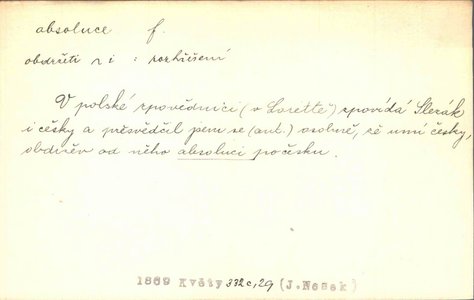 absoluce f.
obdržeti ~i : rozhřišení
V polské zpovědnici („v Lorettě") zpovídá Slezák
i česky a přesvědčil jsem se (aut.) osobně, že umí česky,
obdržev od něho absoluci po česku.
1869 Květy 332c,29 (J.Nešek)